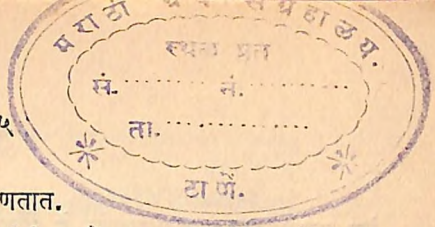 मराठी ग्रंथ संग्रहालय.
स्थळ प्रत
सं. ............ नं. ............
ता. ................
ठाणें.
५
णतात.